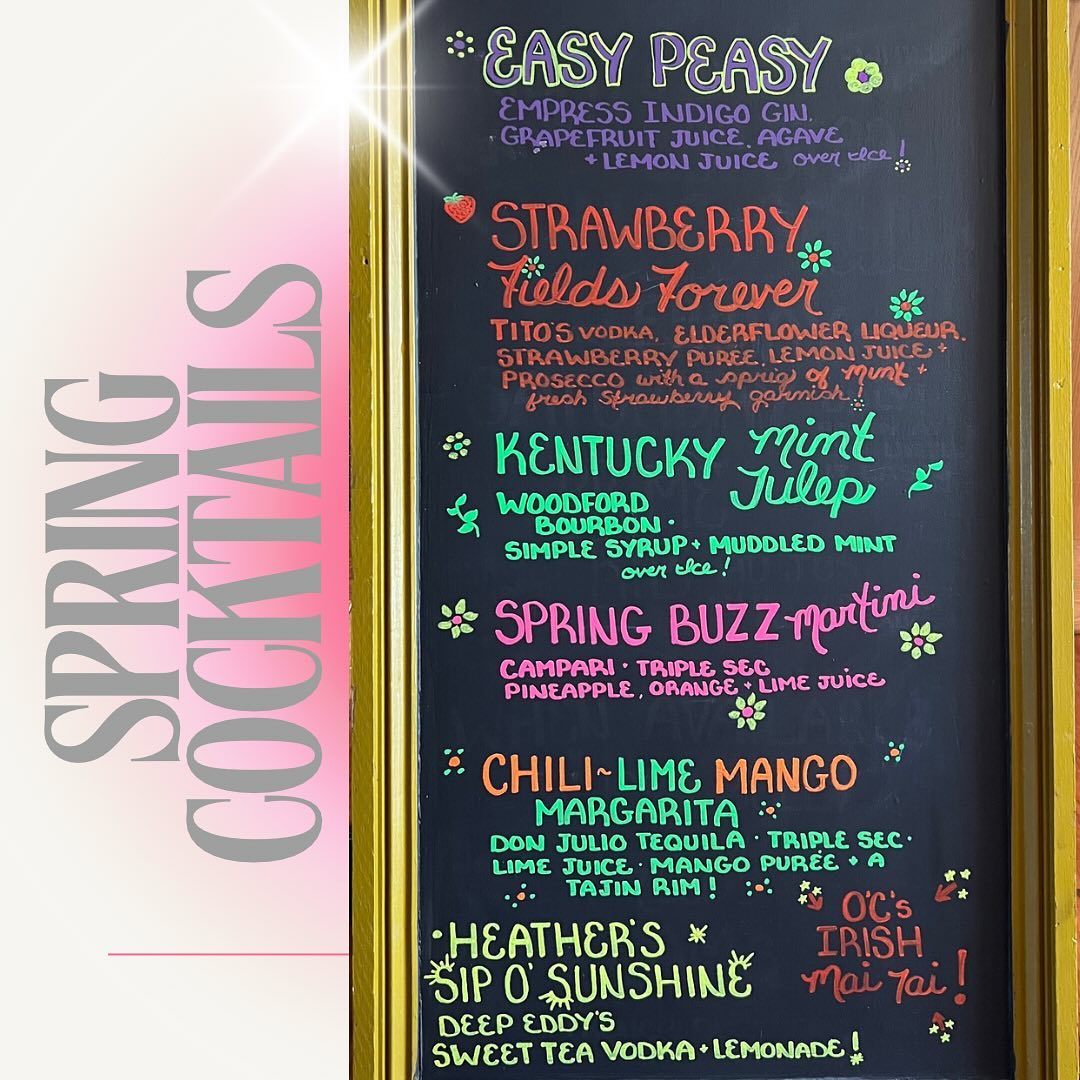 SPRING
COCKTAILS
EASY PEASY
EMPRESS INDIGO GIN,
GRAPEFRUIT JUICE, AGAVE
+ LEMON JUICE over ice!
STRAWBERRY
Fields Forever
TITO'S VODKA, ELDERFLOWER LIQUEUR,
STRAWBERRY PURÉE, LEMON JUICE +
PROSECCO with a sprig of mint +
fresh strawberry garnish!
KENTUCKY mint
Julep
WOODFORD
BOURBON ·
SIMPLE SYRUP + MUDDLED MINT
over ice!
SPRING BUZZ martini
CAMPARI · TRIPLE SEC
PINEAPPLE, ORANGE + LIME JUICE
CHILI~LIME MANGO
MARGARITA
DON JULIO TEQUILA · TRIPLE SEC ·
LIME JUICE · MANGO PURÉE + A
TAJIN RIM!
HEATHER'S
SIP O' SUNSHINE
DEEP EDDY'S
SWEET TEA VODKA + LEMONADE!
O'C's
IRISH
Mai Tai!